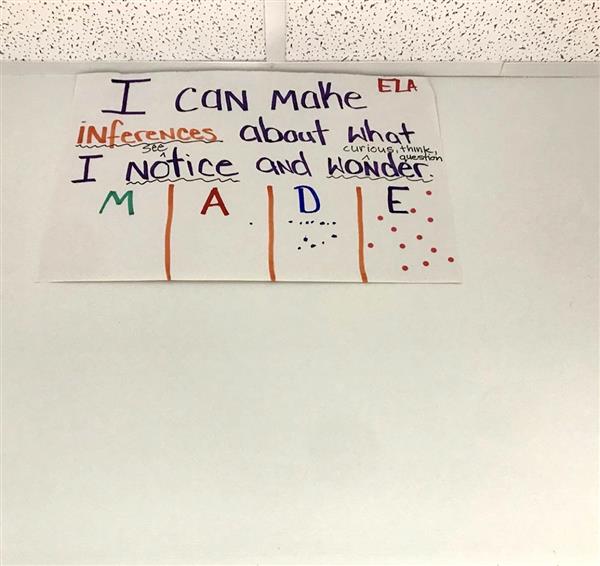 I can make ELA
inferences about what
see curious, think, question
I notice and wonder.
M A D E